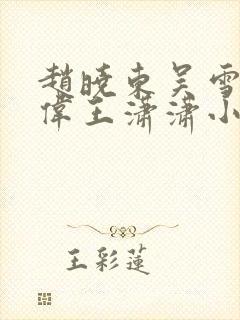 趙曉東吳雪
偉王瀟瀟小
王彩蓮